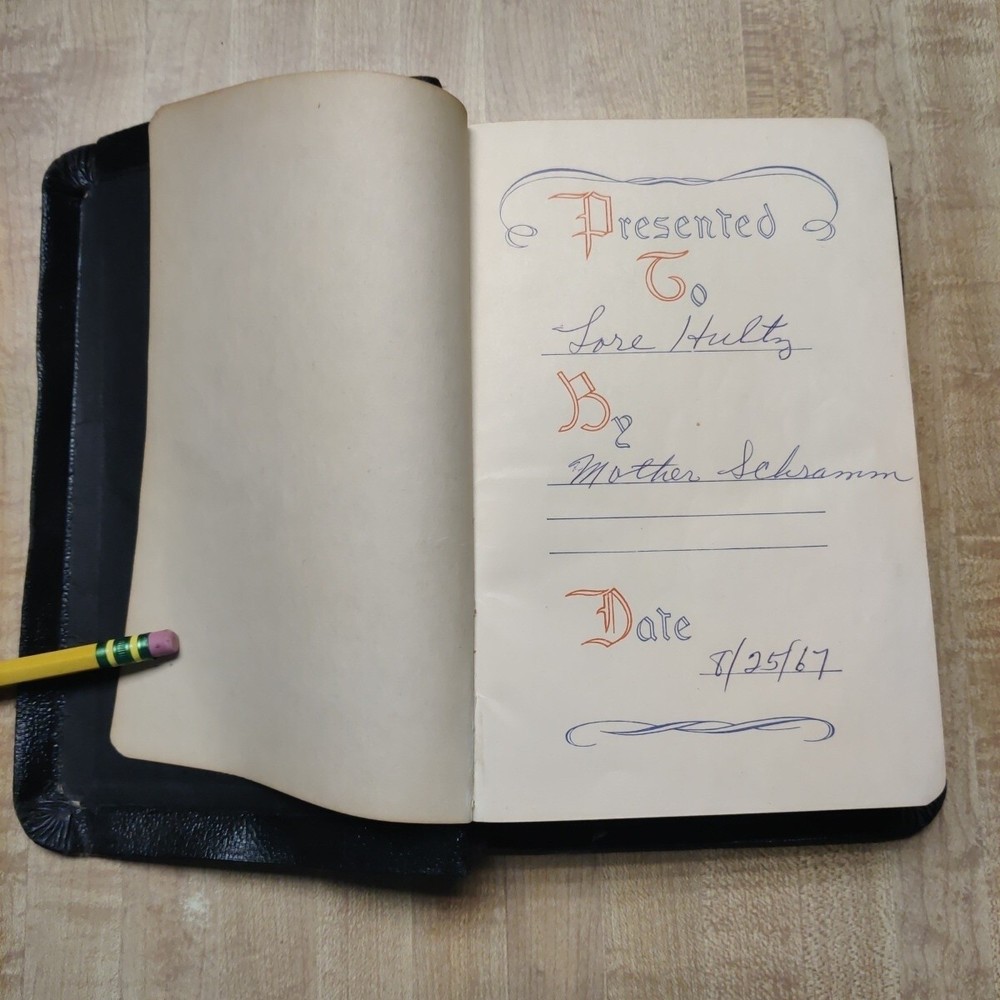 Presented
To
Lore Hultz
By
Mother Schramm
Date
8/25/67